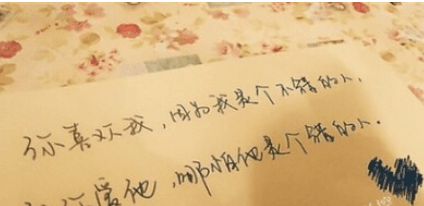 你喜欢我，因为我是个不错的人，
你爱他，哪怕他是个错的人。